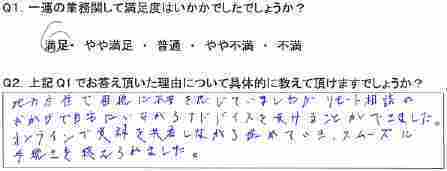 Q1. 一連の業務関して満足度はいかかでしたでしょうか？
満足・ やや満足 ・ 普通 ・ やや不満 ・ 不満
Q2. 上記Q1でお答え頂いた理由について具体的に教えて頂けますでしょうか？
地方在住で相続に不安を感じていましたが リモート相談の
おかげで自宅にいながらアドバイスを受けることができました。
オンラインで資料を共有しながら進めていき、スムーズに
手続きを終えられました。